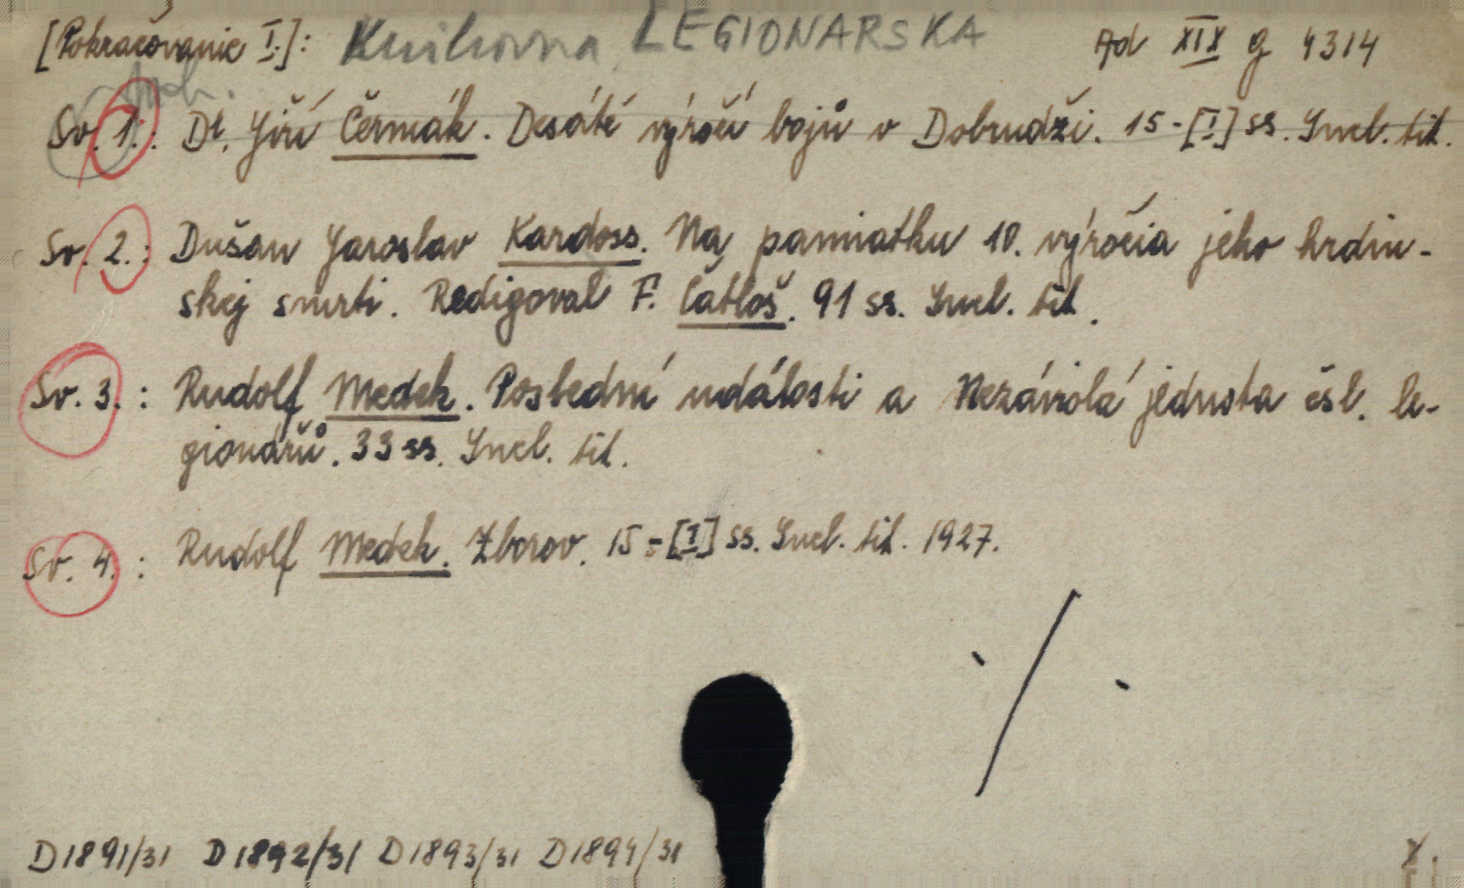 [Pokračovanie I.]: Knihovna LEGIONARSKA Ad XIX g 4314
Sv. 1.: Dr. Jiří Čermák. Desáté výročí bojů v Dobrudži. 15-[I] ss. Incl. tit.
Sv. 2.: Dušan Jaroslav Kardoss. Na pamiatku 10. výročia jeho hrdin-
skej smrti. Redigoval F. Čatloš. 91 ss. Incl. tit.
Sv. 3.: Rudolf Medek. Poslední události a Nezávislá jednota čsl. le-
gionářů. 33 ss. Incl. tit.
Sv. 4.: Rudolf Medek. Zborov. 15-[I] ss. Incl. tit. 1927.
./.
D1891/31 D1892/31 D1893/31 D1894/31